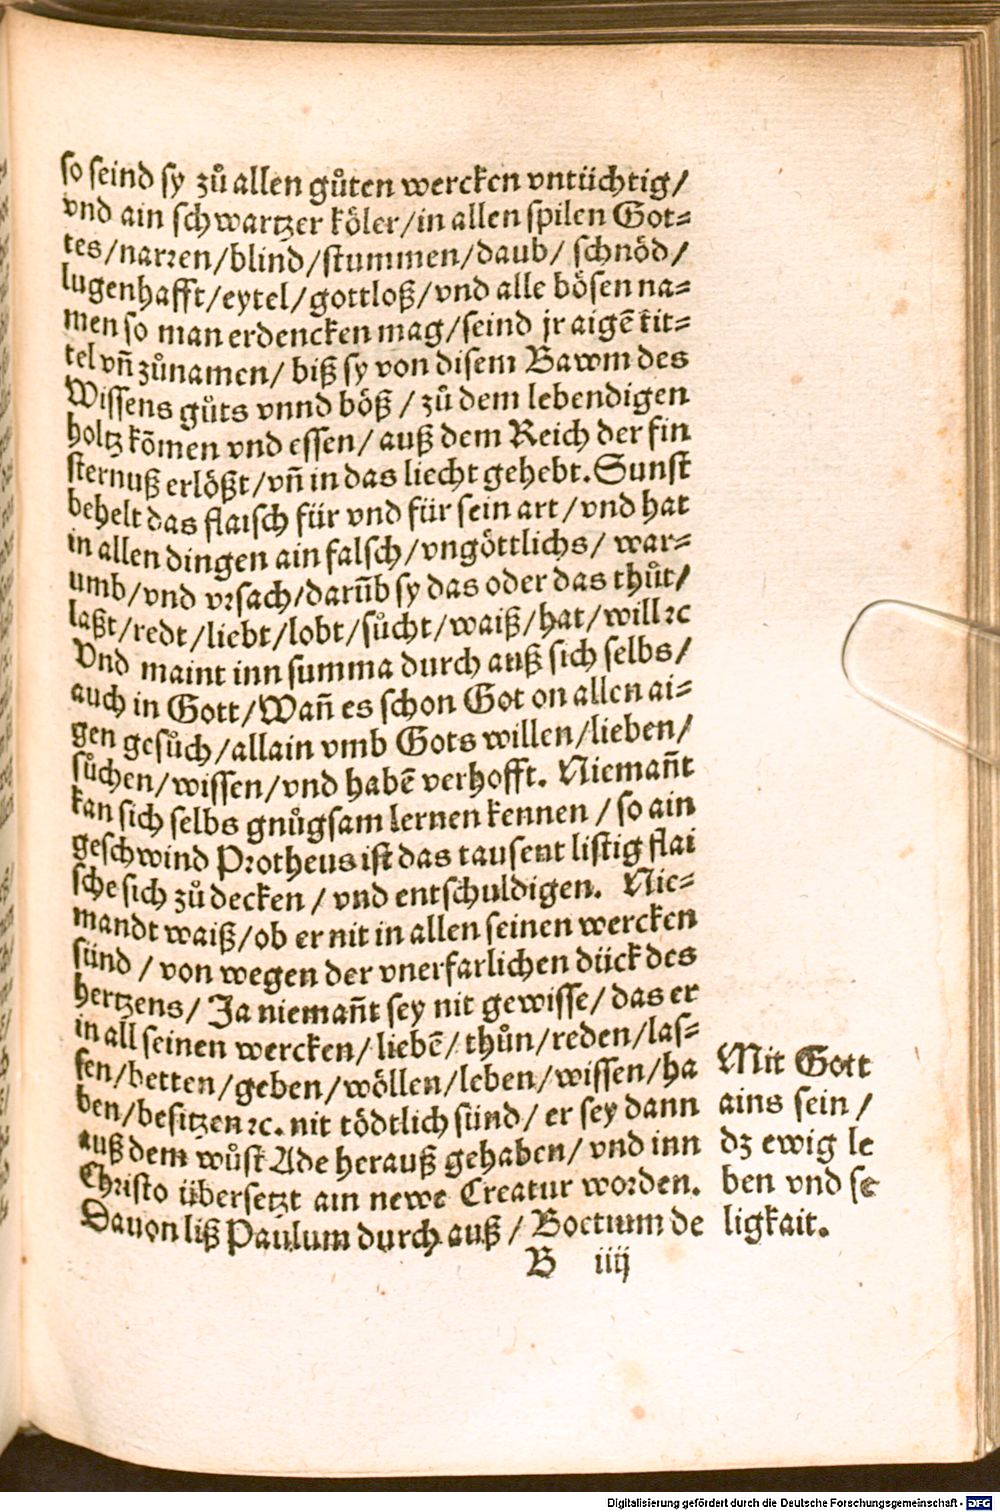 so seind sy zů allen gůten wercken vntüchtig/
vnd ain schwartzer köler/in allen spilen Got-
tes/narren/blind/stummen/daub/ schnöd/
lugenhafft/eytel/gottloß/vnd alle bösen na-
men so man erdencken mag/seind jr aigē tit-
tel vñ zůnamen/ biß sy von disem Bawm des
Wissens gůts vnnd böß / zů dem lebendigen
holtz kōmen vnd essen/ auß dem Reich der fin
sternuß erlößt/vñ in das liecht gehebt. Sunst
behelt das flaisch für vnd für sein art/vnd hat
in allen dingen ain falsch/vngöttlichs/ war-
umb/vnd vrsach/darūb sy das oder das thůt/
laßt/redt/liebt/lobt/sůcht/waiß/hat/will ꝛc
Vnd maint inn summa durch auß sich selbs/
auch in Gott/Wañ es schon Got on allen ai-
gen gesůch/allain vmb Gots willen/lieben/
sůchen/wissen/vnd habē verhofft. Niemañt
kan sich selbs gnůgsam lernen kennen / so ain
geschwind Protheus ist das tausent listig flai
sche sich zů decken / vnd entschuldigen. Nie-
mandt waiß/ob er nit in allen seinen wercken
sünd / von wegen der vnerfarlichen dück des
hertzens/ Ja niemañt sey nit gewisse/ das er
in all seinen wercken/ liebē/ thůn/reden/las-
sen/betten/geben/wöllen/leben/wissen/ha
ben/besitzen ꝛc. nit tödtlich sünd/ er sey dann
auß dem wůst Ade herauß gehaben/ vnd inn
Christo übersetzt ain newe Creatur worden.
Dauon liß Paulum durch auß / Boetium de
Mit Gott
ains sein /
dz ewig le
ben vnd se
ligkait.
B iiij
Digitalisierung gefördert durch die Deutsche Forschungsgemeinschaft - DFG